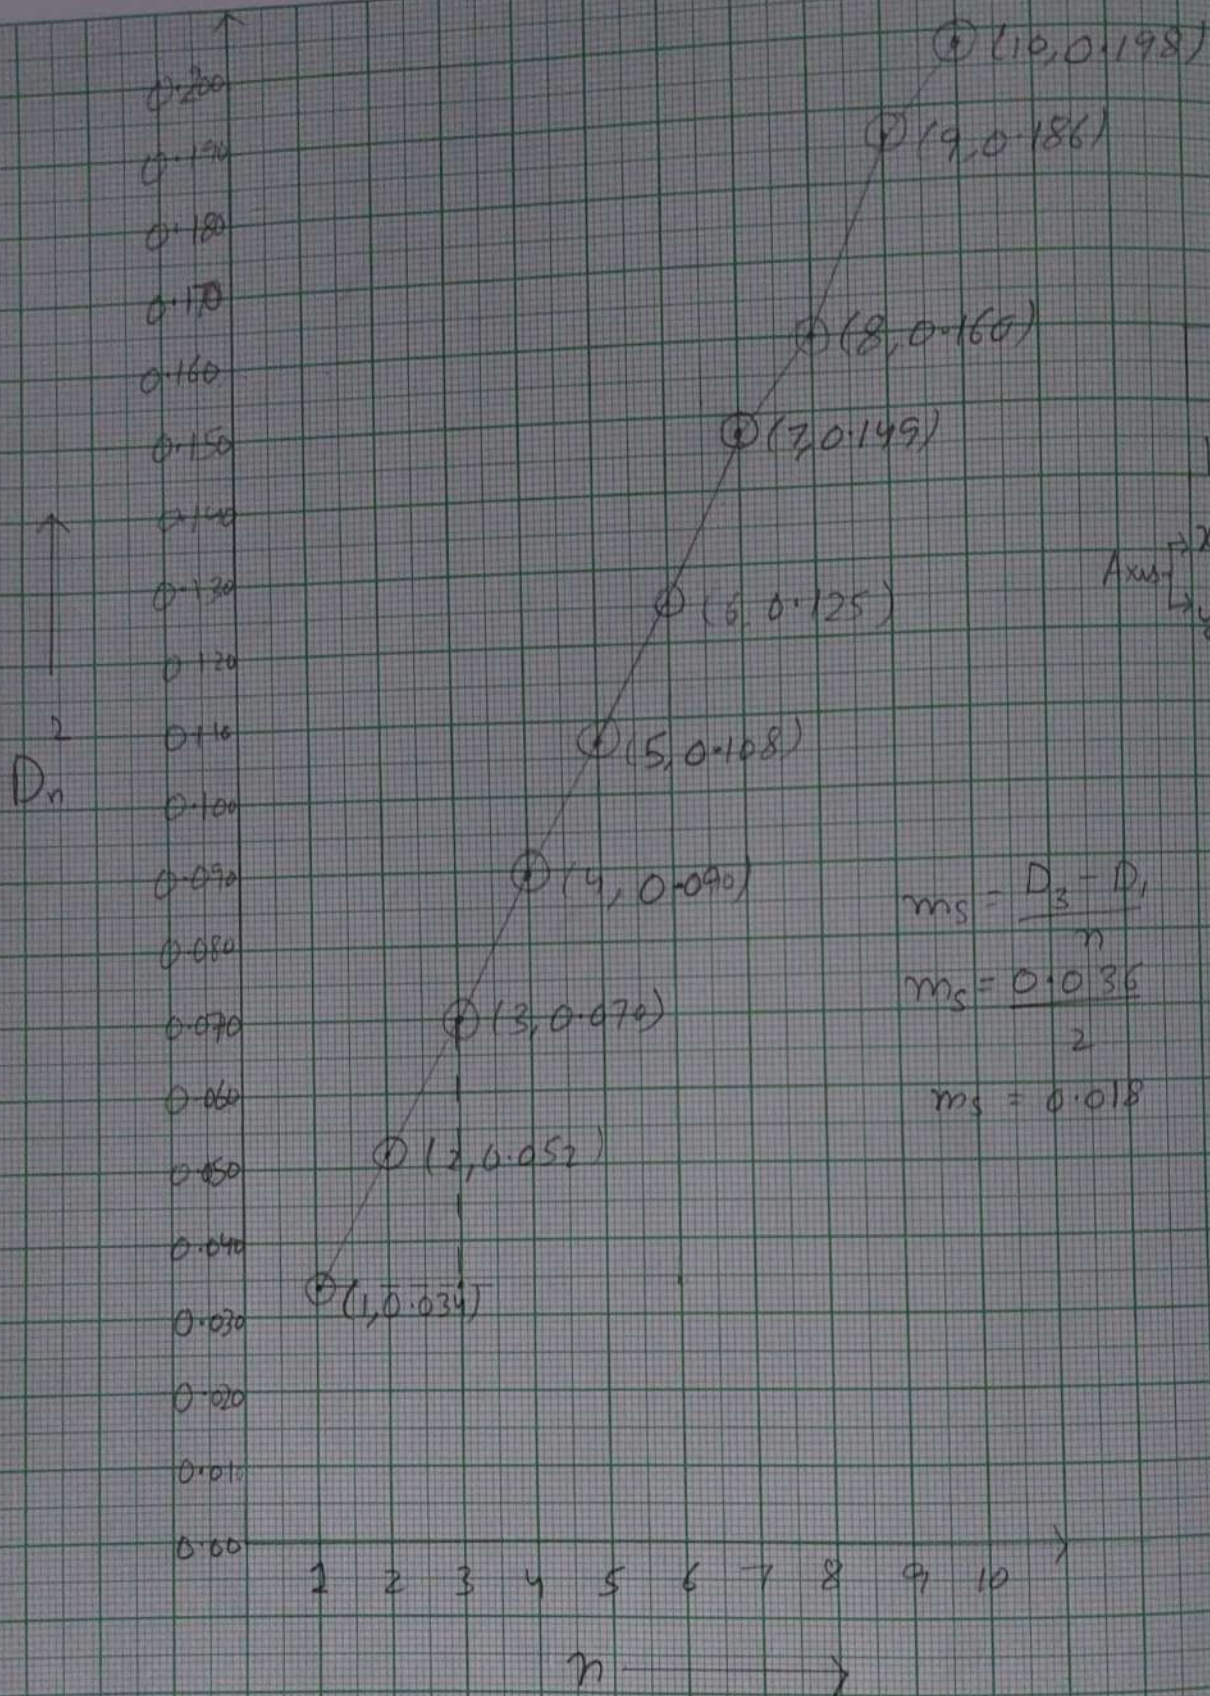 0.200
0.190
0.180
0.170
0.160
0.150
0.140
0.130
0.120
0.110
0.100
0.090
0.080
0.070
0.060
0.050
0.040
0.030
0.020
0.010
0.00
Dn²
(10, 0.198)
(9, 0.186)
(8, 0.160)
(7, 0.149)
(6, 0.125)
(5, 0.108)
(4, 0.090)
(3, 0.070)
(2, 0.052)
(1, 0.034)
Axis
ms = D3 - D1 / n
ms = 0.036 / 2
ms = 0.018
1 2 3 4 5 6 7 8 9 10
n